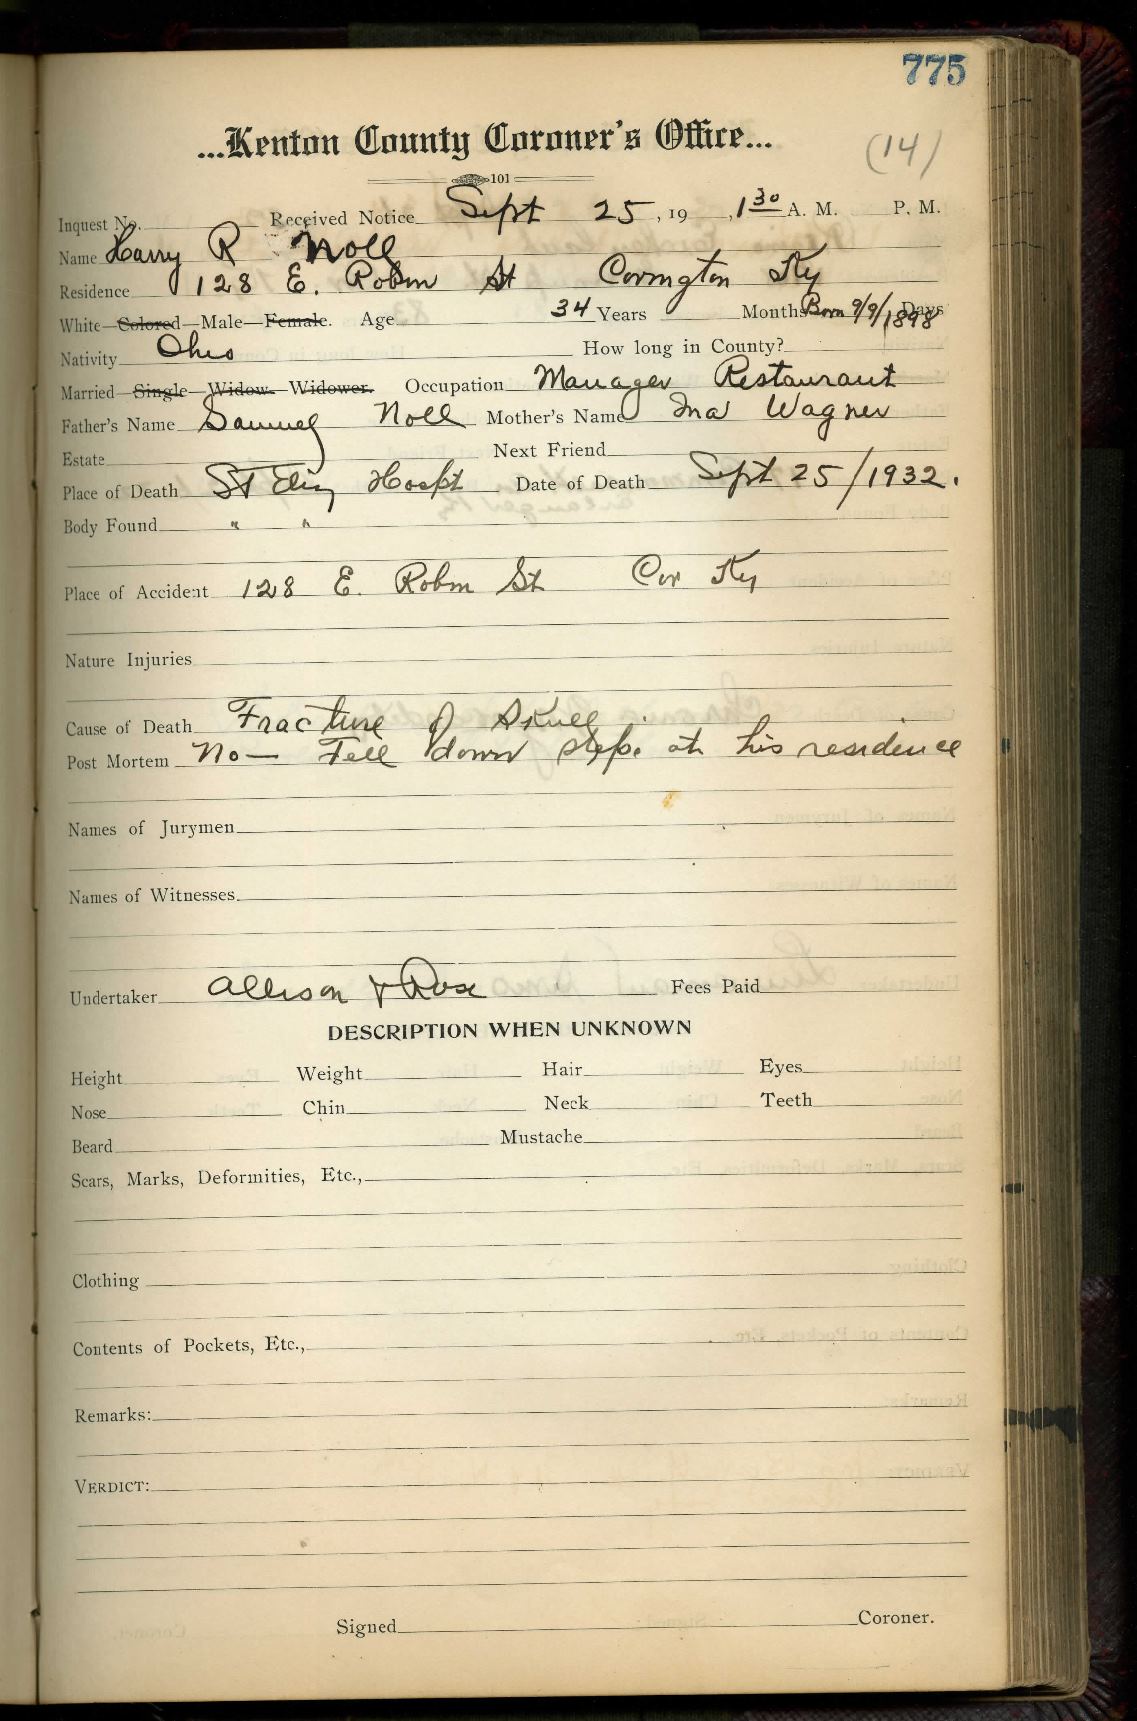 775
...Kenton County Coroner's Office...
(14)
101
Inquest No. Received Notice Sept 25, 19 , 1 30 A. M. P. M.
Name Harry R Noll
Residence 128 E. Robin St Covington Ky
White—Colored—Male—Female. Age 34 Years Months Born 9/9/1898 Days
Nativity Ohio How long in County?
Married—Single—Widow—Widower. Occupation Manager Restaurant
Father's Name Samuel Noll Mother's Name Ina Wagner
Estate Next Friend
Place of Death St Eliz Hospt Date of Death Sept 25/1932.
Body Found " "
Place of Accident 128 E. Robin St Cov Ky
Nature Injuries
Cause of Death Fracture of Skull
Post Mortem No— Fell down steps at his residence
Names of Jurymen
Names of Witnesses
Undertaker Allison & Rose Fees Paid
DESCRIPTION WHEN UNKNOWN
Height Weight Hair Eyes
Nose Chin Neck Teeth
Beard Mustache
Scars, Marks, Deformities, Etc.,
Clothing
Contents of Pockets, Etc.,
Remarks:
VERDICT:
Signed Coroner.